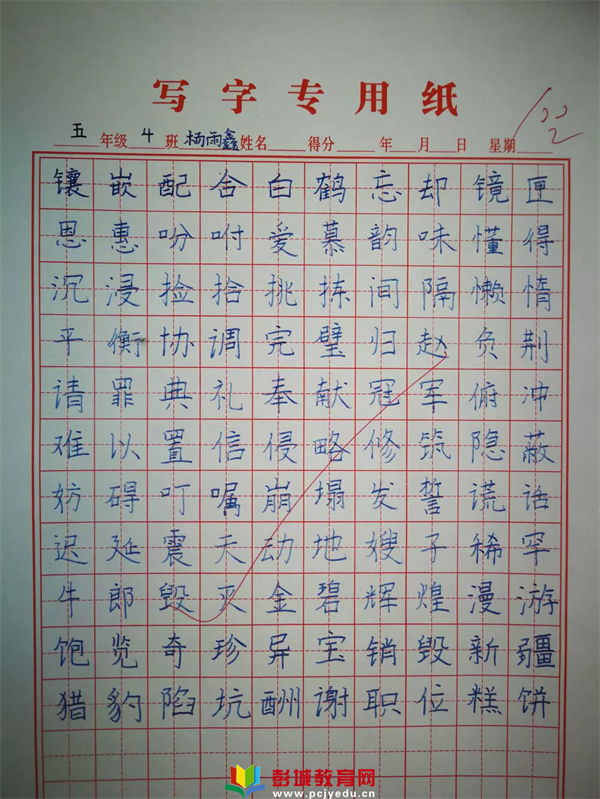 写字专用纸
五年级 4 班 杨雨鑫 姓名 得分 年 月 日 星期
镶嵌配合白鹤忘却镜匣
恩惠吩咐爱慕韵味懂得
沉浸捡拾挑拣间隔懒惰
平衡协调完璧归赵负荆
请罪典礼奉献冠军俯冲
难以置信侵略修筑隐蔽
妨碍叮嘱崩塌发誓谎话
迟延震天动地嫂子稀罕
牛郎毁灭金碧辉煌漫游
饱览奇珍异宝销毁新疆
猎豹陷坑酬谢职位糕饼
彭城教育网
www.pcjyedu.cn